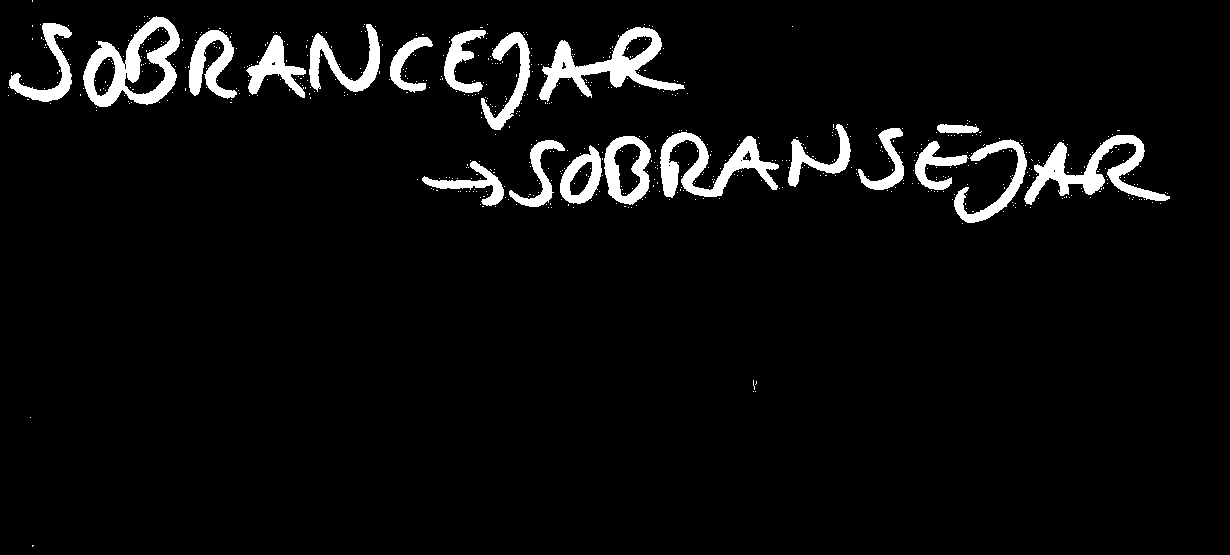 SOBRANCEJAR
→SOBRANSĒJAR